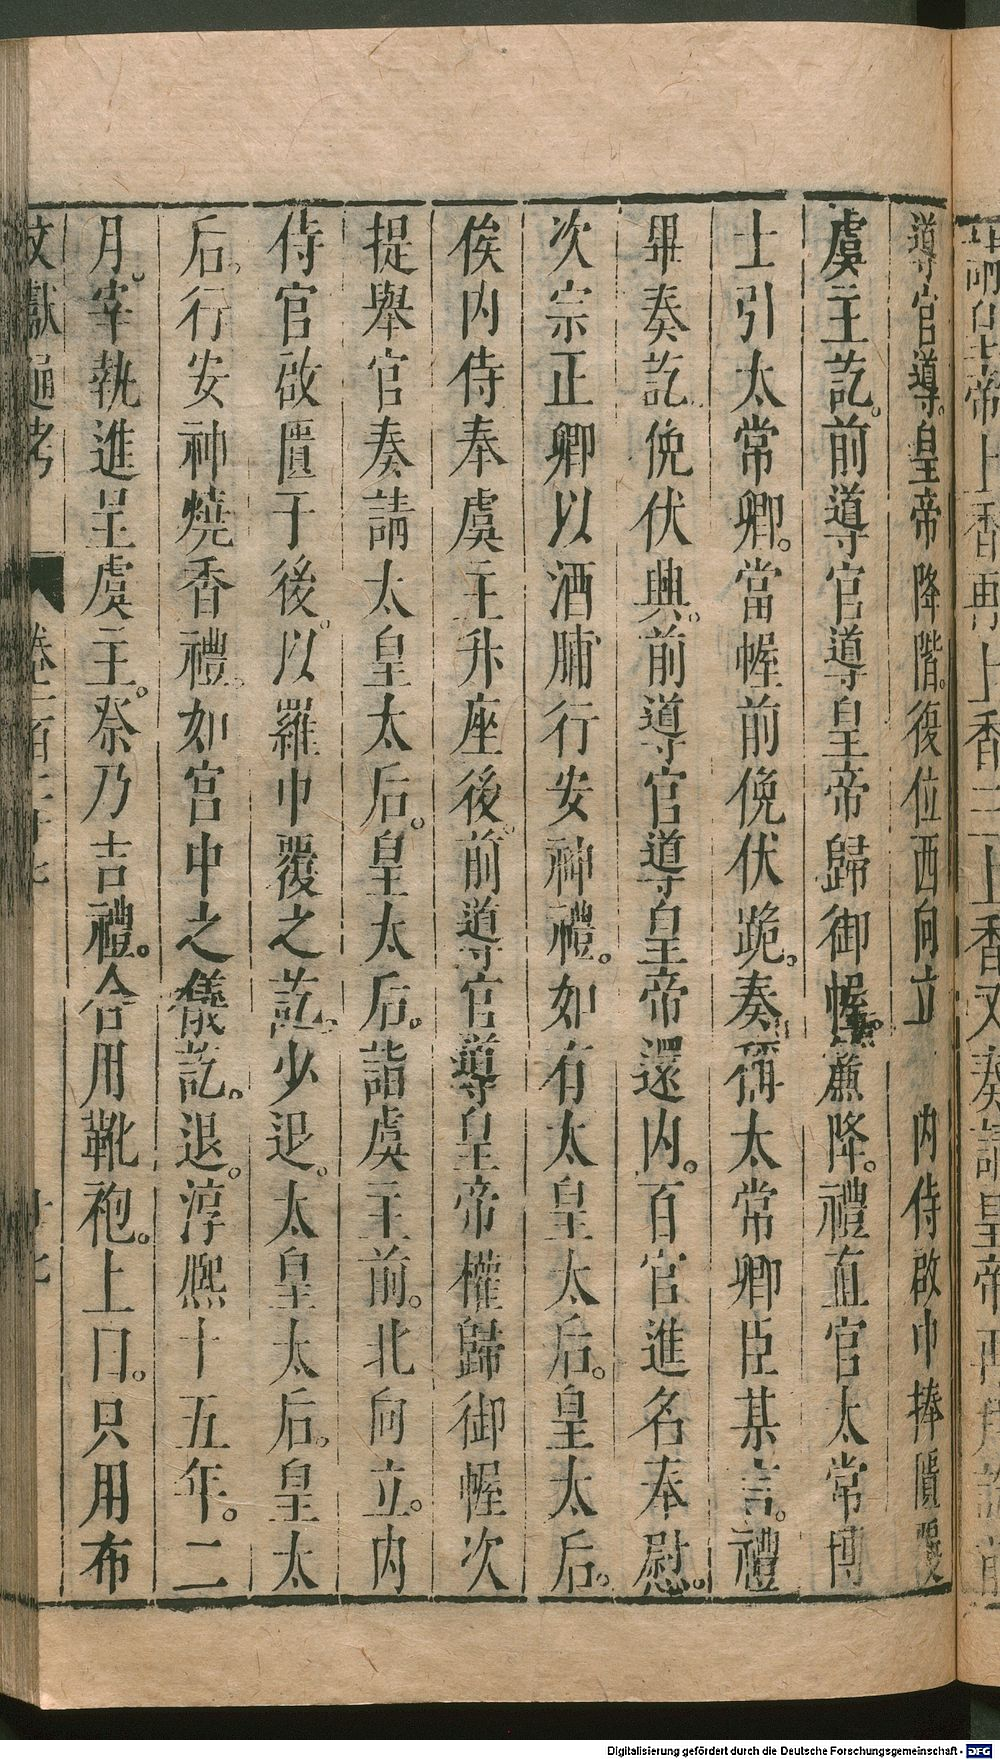 導官導。皇帝降階。復位西向立　內侍啟巾捧匱覆
虞主訖。前導官導皇帝歸御幄。簾降。禮直官太常博
士引太常卿。當幄前俛伏跪。奏稱太常卿臣某言。禮
畢奏訖俛伏興。前導官導皇帝還內。百官進名奉慰。
次宗正卿以酒脯行安神禮。如有太皇太后。皇太后。
俟內侍奉虞主升座後。前導官導皇帝權歸御幄次
提舉官奏請太皇太后。皇太后。詣虞主前。北向立。內
侍官啟匱于後。以羅巾覆之訖。少退。太皇太后。皇太
后。行安神燒香禮。如宮中之儀訖。退。淳熙十五年。二
月。宰執進呈虞主。祭乃吉禮。合用靴袍。上曰。只用布
文獻通考　卷一百二十七
Digitalisierung gefördert durch die Deutsche Forschungsgemeinschaft - DFG